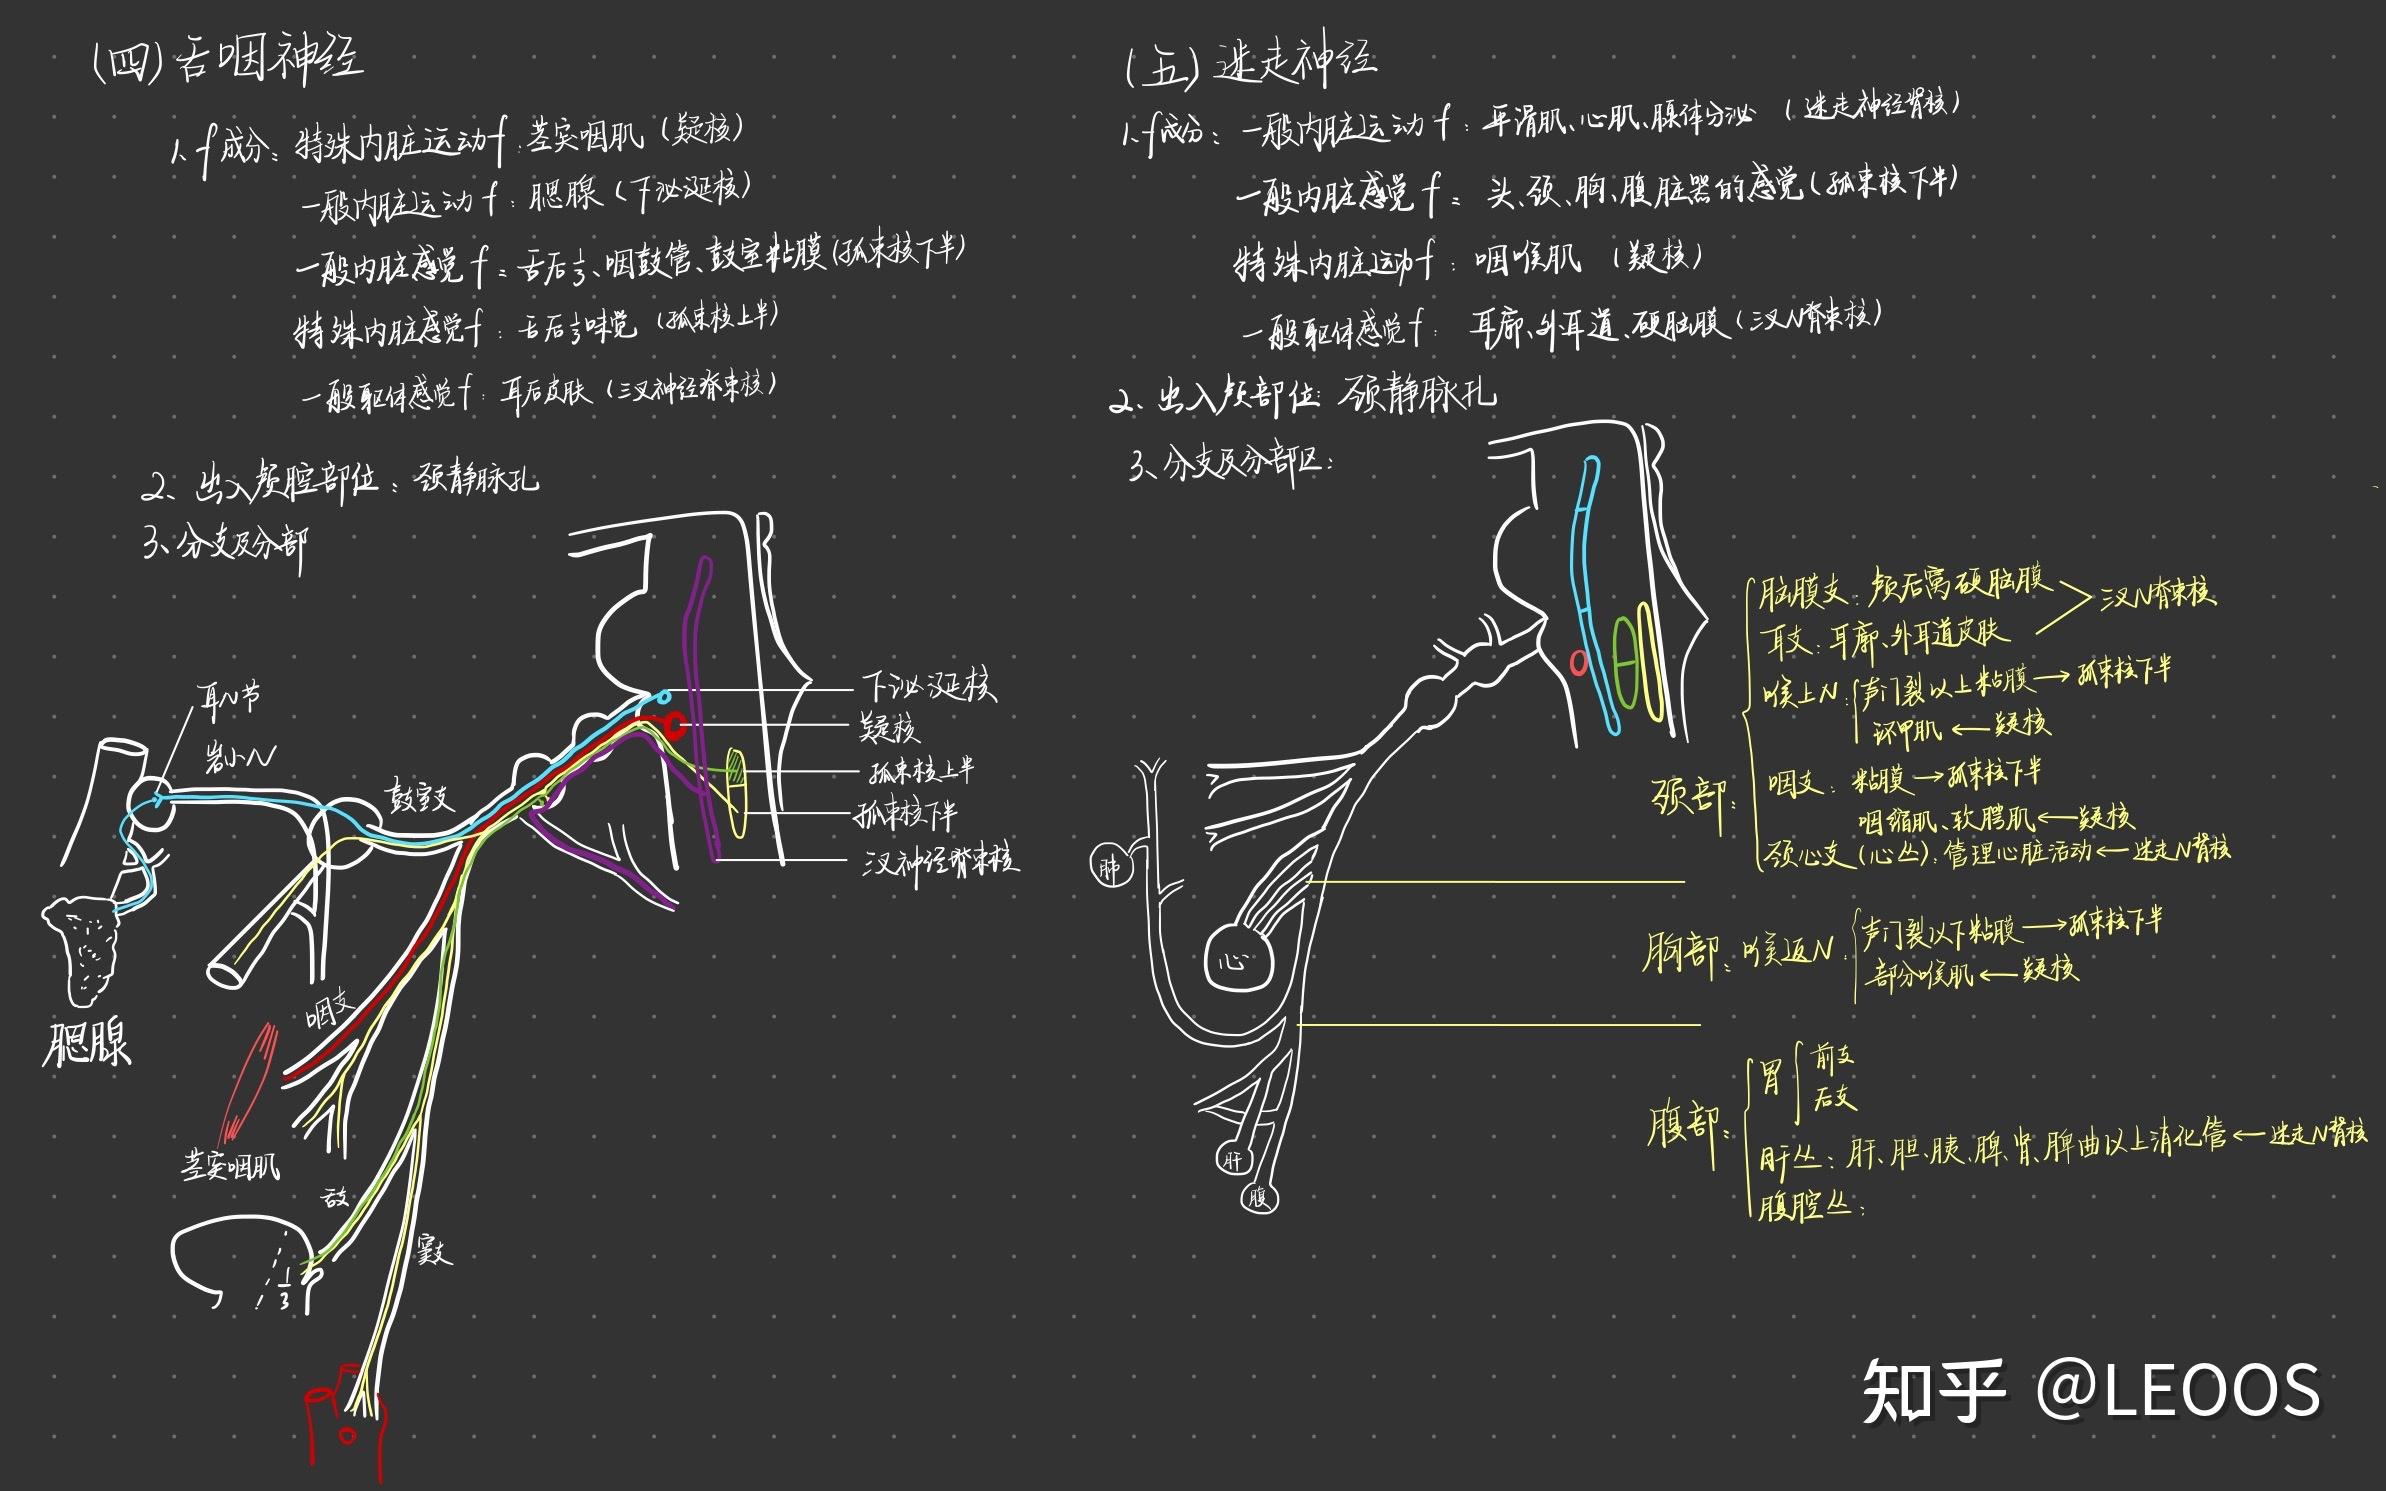 (四)舌咽神经
1、f成分：特殊内脏运动f：茎突咽肌（疑核）
一般内脏运动f：腮腺（下泌涎核）
一般内脏感觉f：舌后1/3、咽鼓管、鼓室粘膜（孤束核下半）
特殊内脏感觉f：舌后1/3味觉（孤束核上半）
一般躯体感觉f：耳后皮肤（三叉神经脊束核）
2、出入颅腔部位：颈静脉孔
3、分支及分部
耳N节
岩小N
鼓室支
下泌涎核
疑核
孤束核上半
孤束核下半
三叉神经脊束核
腮腺
咽支
茎突咽肌
舌支
1/3
窦支
(五)迷走神经
1、f成分：一般内脏运动f：平滑肌、心肌、腺体分泌（迷走神经背核）
一般内脏感觉f：头、颈、胸、腹脏器的感觉（孤束核下半）
特殊内脏运动f：咽喉肌（疑核）
一般躯体感觉f：耳廓、外耳道、硬脑膜（三叉N脊束核）
2、出入颅部位：颈静脉孔
3、分支及分部区：
肺
心
肝
腹
颈部：
脑膜支：颅后窝硬脑膜
耳支：耳廓、外耳道皮肤
三叉N脊束核
喉上N：声门裂以上粘膜→孤束核下半
环甲肌←疑核
咽支：粘膜→孤束核下半
咽缩肌、软腭肌←疑核
颈心支（心丛）：管理心脏活动←迷走N背核
胸部：喉返N：声门裂以下粘膜→孤束核下半
部分喉肌←疑核
腹部：
胃 前支
后支
肝丛：肝、胆、胰、脾、肾、脾曲以上消化管←迷走N背核
腹腔丛：
知乎 @LEOOS